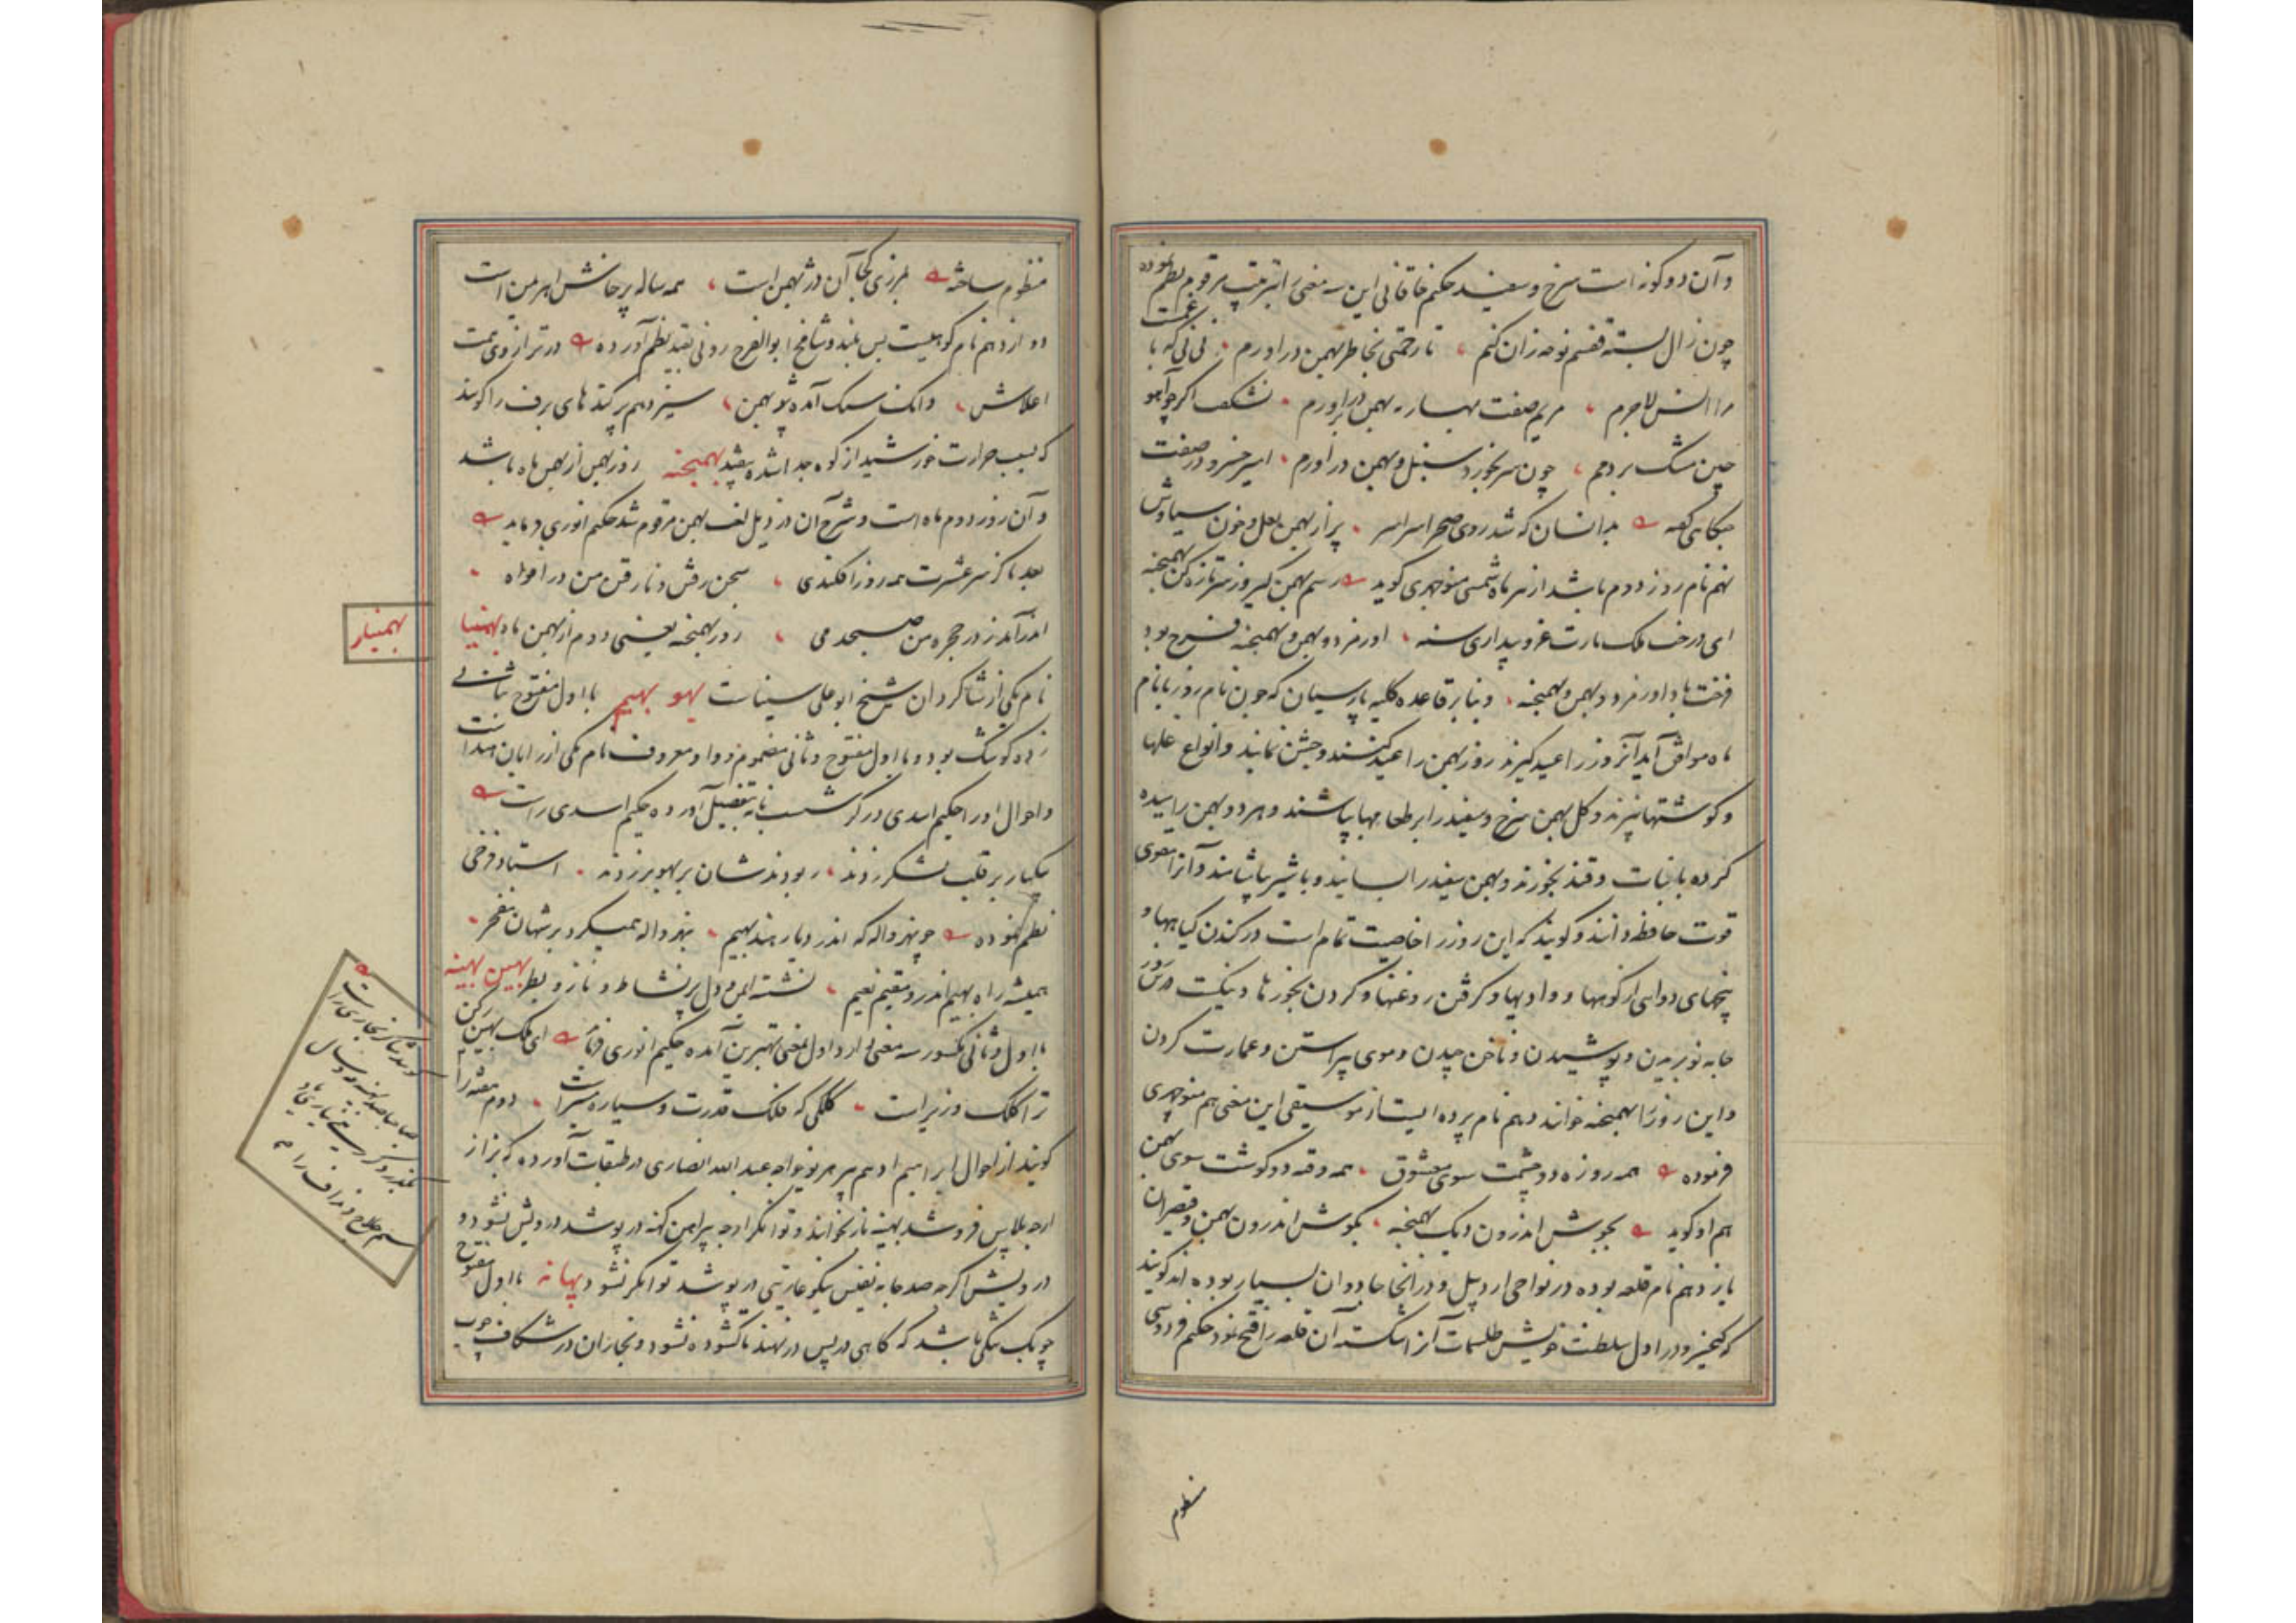 وآن دو کونه است سرخ و سفید حکیم خاقانی این سه معنی را بترتیب مرقوم بنظم نموده
چون زال بسته قفسم نوحه زان کنم ، تا رحمتی بخاطر بهمن دراورم ، نی نی که با غمت
مرا انس لاجرم ، مریم صفت بهار بهمن براورم ، نشکفت اکر چو آهو
چین مشک بر دهم ، چون سر بخورد سنبل و بهمن دراورم ، امیر خسرو در صفت
جنکاهی کفته بدانسان که شد روی صحرا سراسر ، پر از بهمن لعل و خون سیاوش
نهم نام روز دوم باشد از هر ماه شمسی منوچهری کوید رسم بهمن کیر و از سر تازه کن بهمنجنه
ای درخت ملک بارت عز و بیداری سنه ، اورمزد و بهمن و بهمنجنه فرخ بود
فرخت باد اورمزد و بهمن و بهمنجنه ، و بنابر قاعده کلیه پارسیان که چون نام روز با نام
ماه موافق آید آنروز را عید کیرند روز بهمن را عید کنند و جشن نمایند و انواع غلها
و کوشتها پزند و کل بهمن سرخ و سفید را بر طعامها پاشند و هر دو بهمن را ییده
کرده با نبات و قند بخورند و بهمن سفید را بسایند و با شیر بیاشامند و آنرا مقوی
قوت حافظه دانند و کویند که این روز را خاصیت تمام است در کندن کیاهها و
بیخهای دوایی از کوهها و وادیها و کرفتن روغنها و کردن بخورها و نیکست درین روز
جامه نو بریدن و پوشیدن و ناخن چیدن و موی پیراستن و عمارت کردن
و این روز را بهمنجنه خوانند دهم نام پرده ایست از موسیقی این معنی هم منوچهری
فرموده همه روزه دو چشمت سوی معشوق ، همه وقته دو کوشت سوی بهمن
هم او کوید بجوش اندرون دیک بهمنجنه ، بکوش اندرون بهمن و قیصران
یازدهم نام قلعه بوده در نواحی اردبیل و در انجا جادوان بسیار بوده اند کویند
که کیخسرو در اول سلطنت خویش طلسمات آنرا شکسته آن قلعه را فتح نمود حکیم فردوسی
منظوم
منظوم ساخته بمرزی کجا آن دز بهمن است ، همه ساله پرخاش اهرمن است
دوازدهم نام کوهیست بس بلند و شامخ ابوالفرج رونی بقید نظم آورده در ترازوی همت
اعلاش ، دانک سنک آمده چو بهمن ، سیزدهم پرکنده های برف را کویند
که بسبب حرارت خورشید از کوه جدا شده بیفتد بهمنجنه روز بهمن از بهمن ماه باشد
و آن روز دوم ماه است و شرح آن در ذیل لغت بهمن مرقوم شد حکیم انوری فرماید
بعد ما کز سر عشرت همه روز افکندی ، سخن رفتن و نارفتن من در افواه ،
اندر آمد ز در حجره من صبحدمی ، روز بهمنجنه یعنی دوم از بهمن ماه بهمنیار
بهمنیار
نام یکی از شاکردان شیخ ابو علی سیناست بهو بهیم با اول مفتوح بثانی
زده کوشک بود و با اول مفتوح و ثانی مضموم و واو معروف نام یکی از رایان هند است
و احوال او را حکیم اسدی در کرشسب نامه بتفصیل آورده حکیم اسدی راست
بیکبار بر قلب لشکر زدند ، ربودندشان بر بهو بر زدند ، استاد فرخی
نظم نموده چو نهرواله که اندر دیار هند بهیم ، بنهرواله همیکرد بر شهان مفخر ،
همیشه رای بهیم اندر و مقیم نعیم ، نشسته ایمن و دل پر نشاط و ناز و بطر بهین بهینه
با اول و ثانی مکسور سه معنی دارد اول بمعنی بهترین آمده حکیم انوری فرماید ای ملک بهین رکن
ترا کلک وزیر است ، کلکی که فلک قدرت و سیاره سیر است ، دوم هفته را
کویند از احوال ابراهیم ادهم پیر هری خواجه عبد الله انصاری در طبقات آورده که بزاز
ارچه پلاس فروشد بهینه ناز نخوانند و توانکر ارچه پیراهن کهنه در پوشد درویش نشود و
درویش اکرچه صد جامه نفیس نیکو عاریتی در پوشد توانکر نشود بهانه با اول مفتوح
چوبک تنکی باشد که کاهی در پس در نهند تا کشوده نشود و نجاران در شکاف چوب
سیم حلاج و نداف را نام